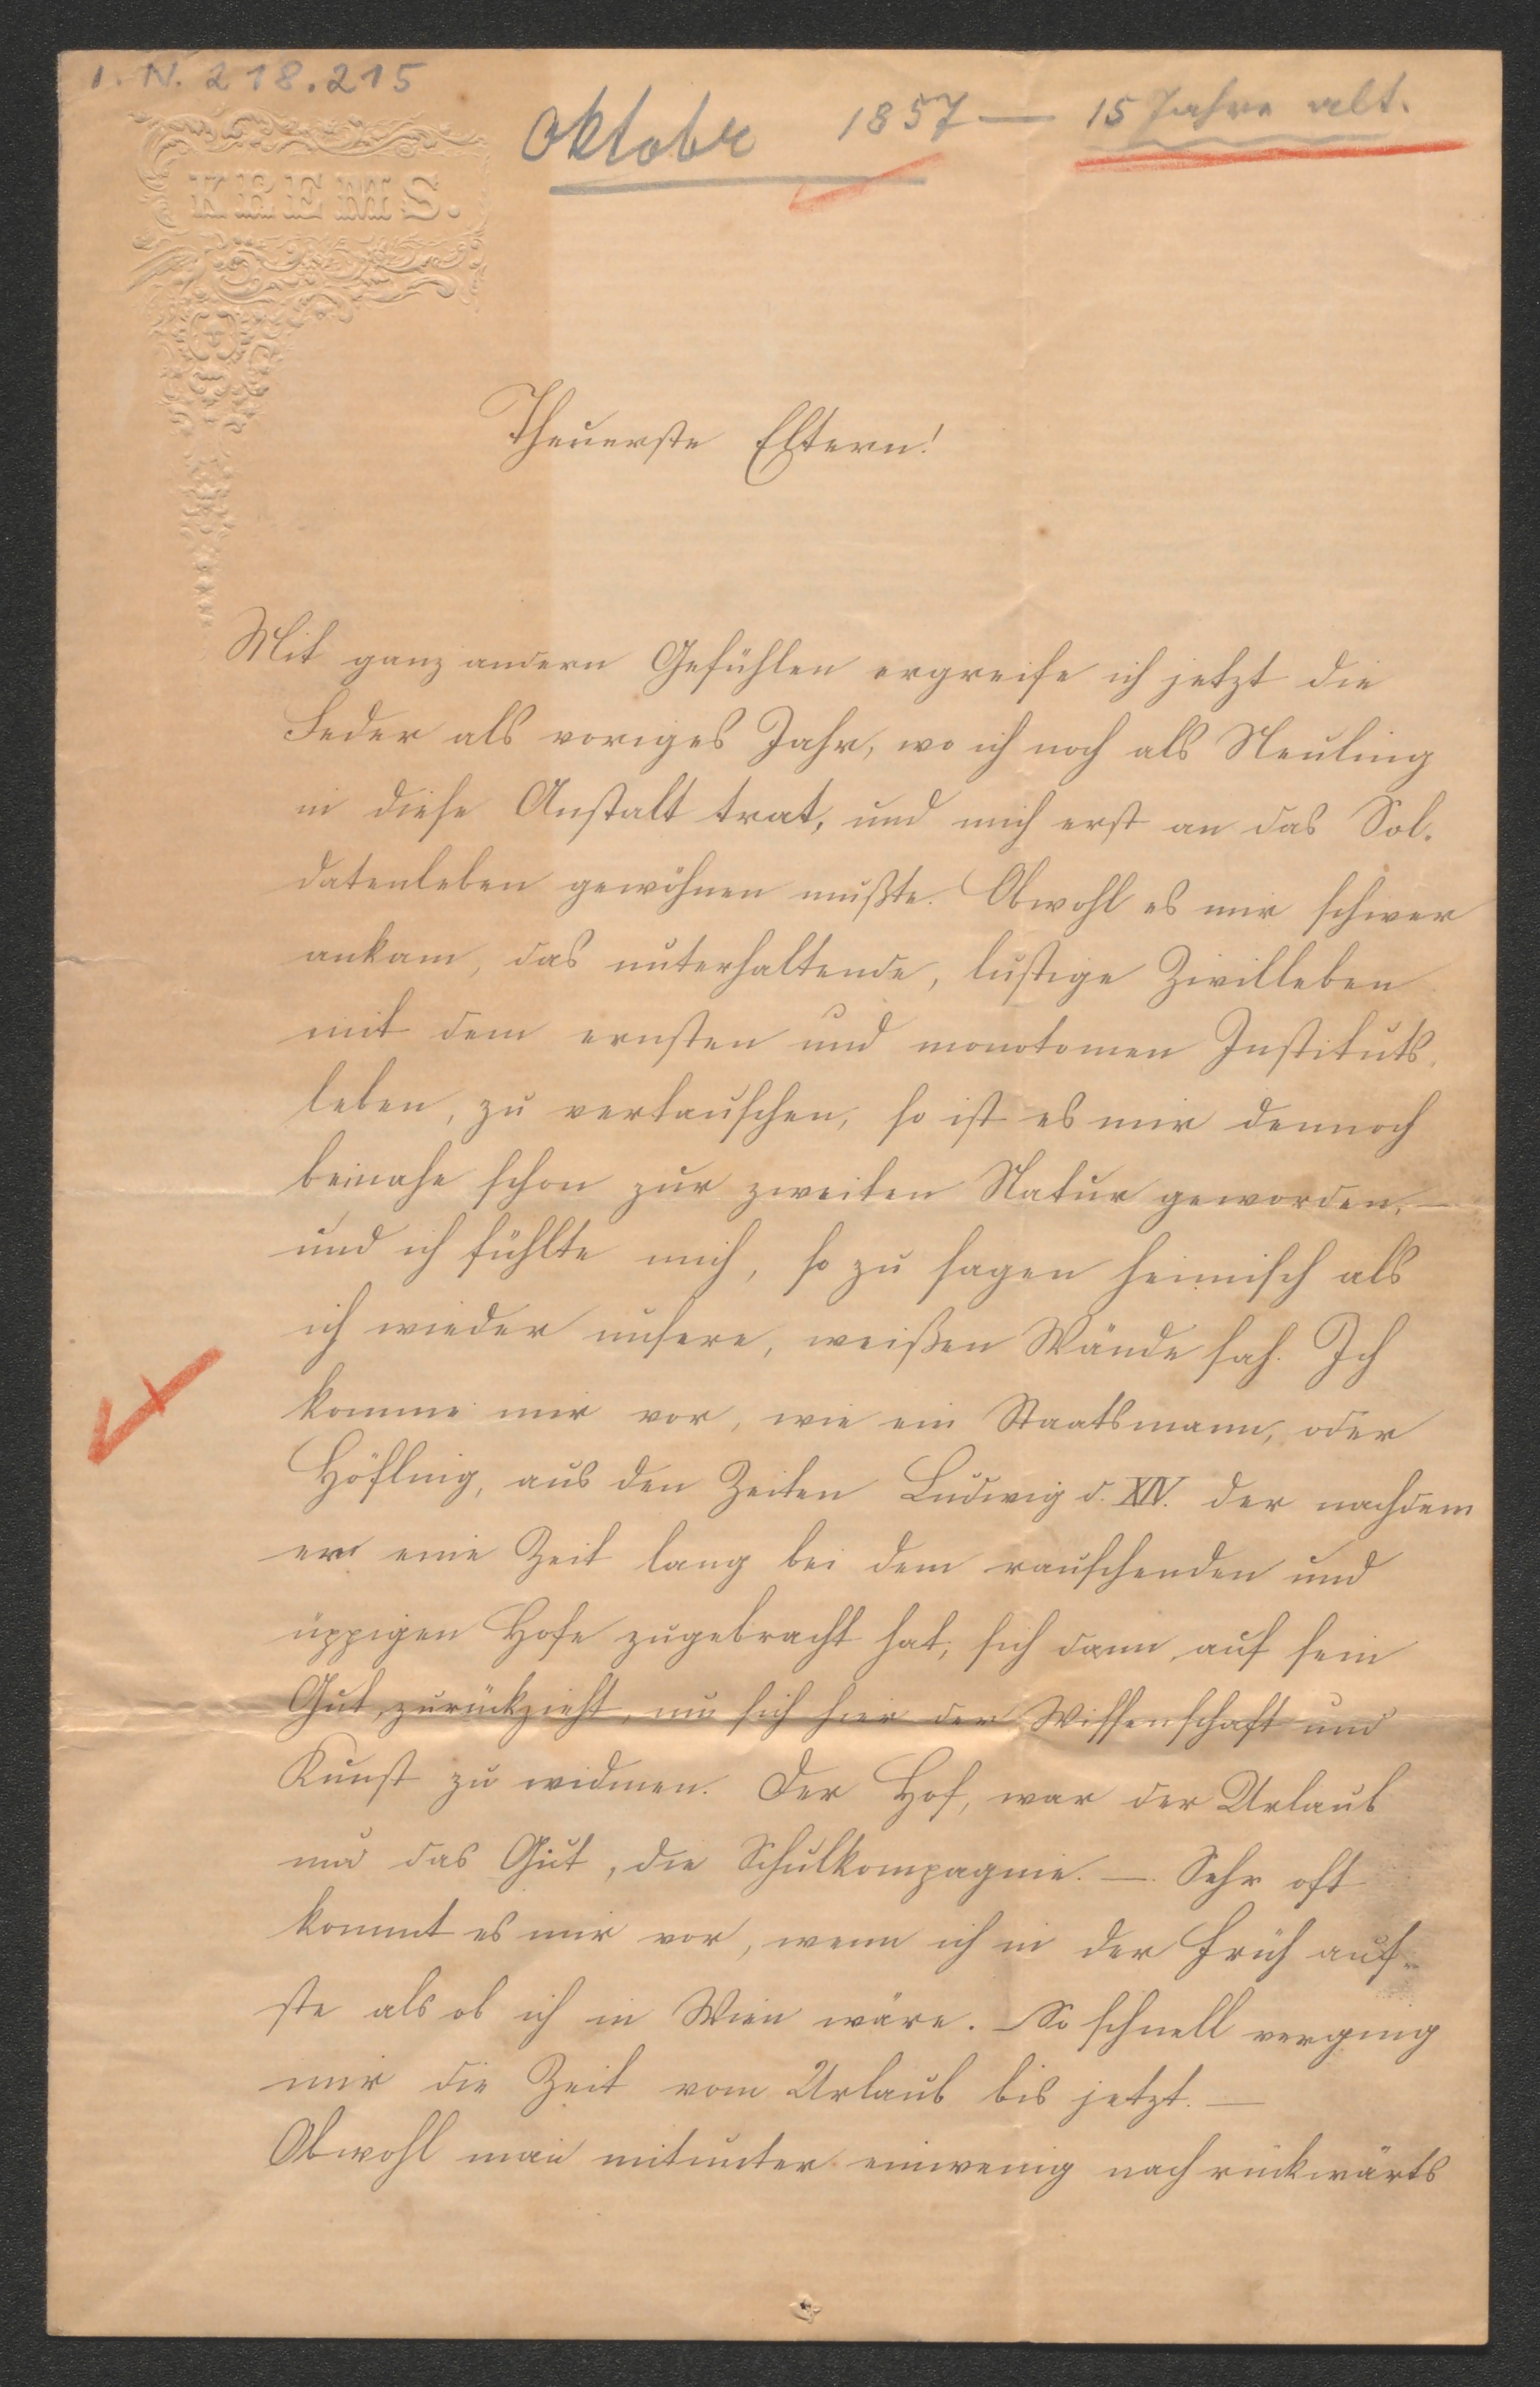 I. N. 218.215
Oktobr 1857 — 15 Jahre alt.
KREMS.
Theuerste Eltern!
Mit ganz andern Gefühlen ergreife ich jetzt die
Feder als voriges Jahr, wo ich noch als Neuling
in diese Anstalt trat, und mich erst an das Sol-
datenleben gewöhnen mußte. Obwohl es mir schwer
ankam, das unterhaltende, lustige Zivilleben
mit dem ernsten und monotomen Instituts-
leben, zu vertauschen, so ist es mir dennoch
beinahe schon zur zweiten Natur geworden, —
und ich fühlte mich, so zu sagen heimisch als
ich wieder unsere, weißen Wände sah. Ich
komme mir vor, wie ein Staatsmann, oder
Höfling, aus den Zeiten Ludwig d. XIV. der nachdem
er eine Zeit lang bei dem rauschenden und
üppigen Hofe zugebracht hat, sich dann auf sein
Gut, zurückzieht, um sich hier der Wissenschaft und
Kunst zu widmen. Der Hof, war der Urlaub
und das Gut, die Schulkompagnie. — Sehr oft
kommt es mir vor, wenn ich in der Früh auf-
ste als ob ich in Wien wäre. So schnell verging
mir die Zeit vom Urlaub bis jetzt. —
Obwohl man mitunter einwenig nach rückwärts